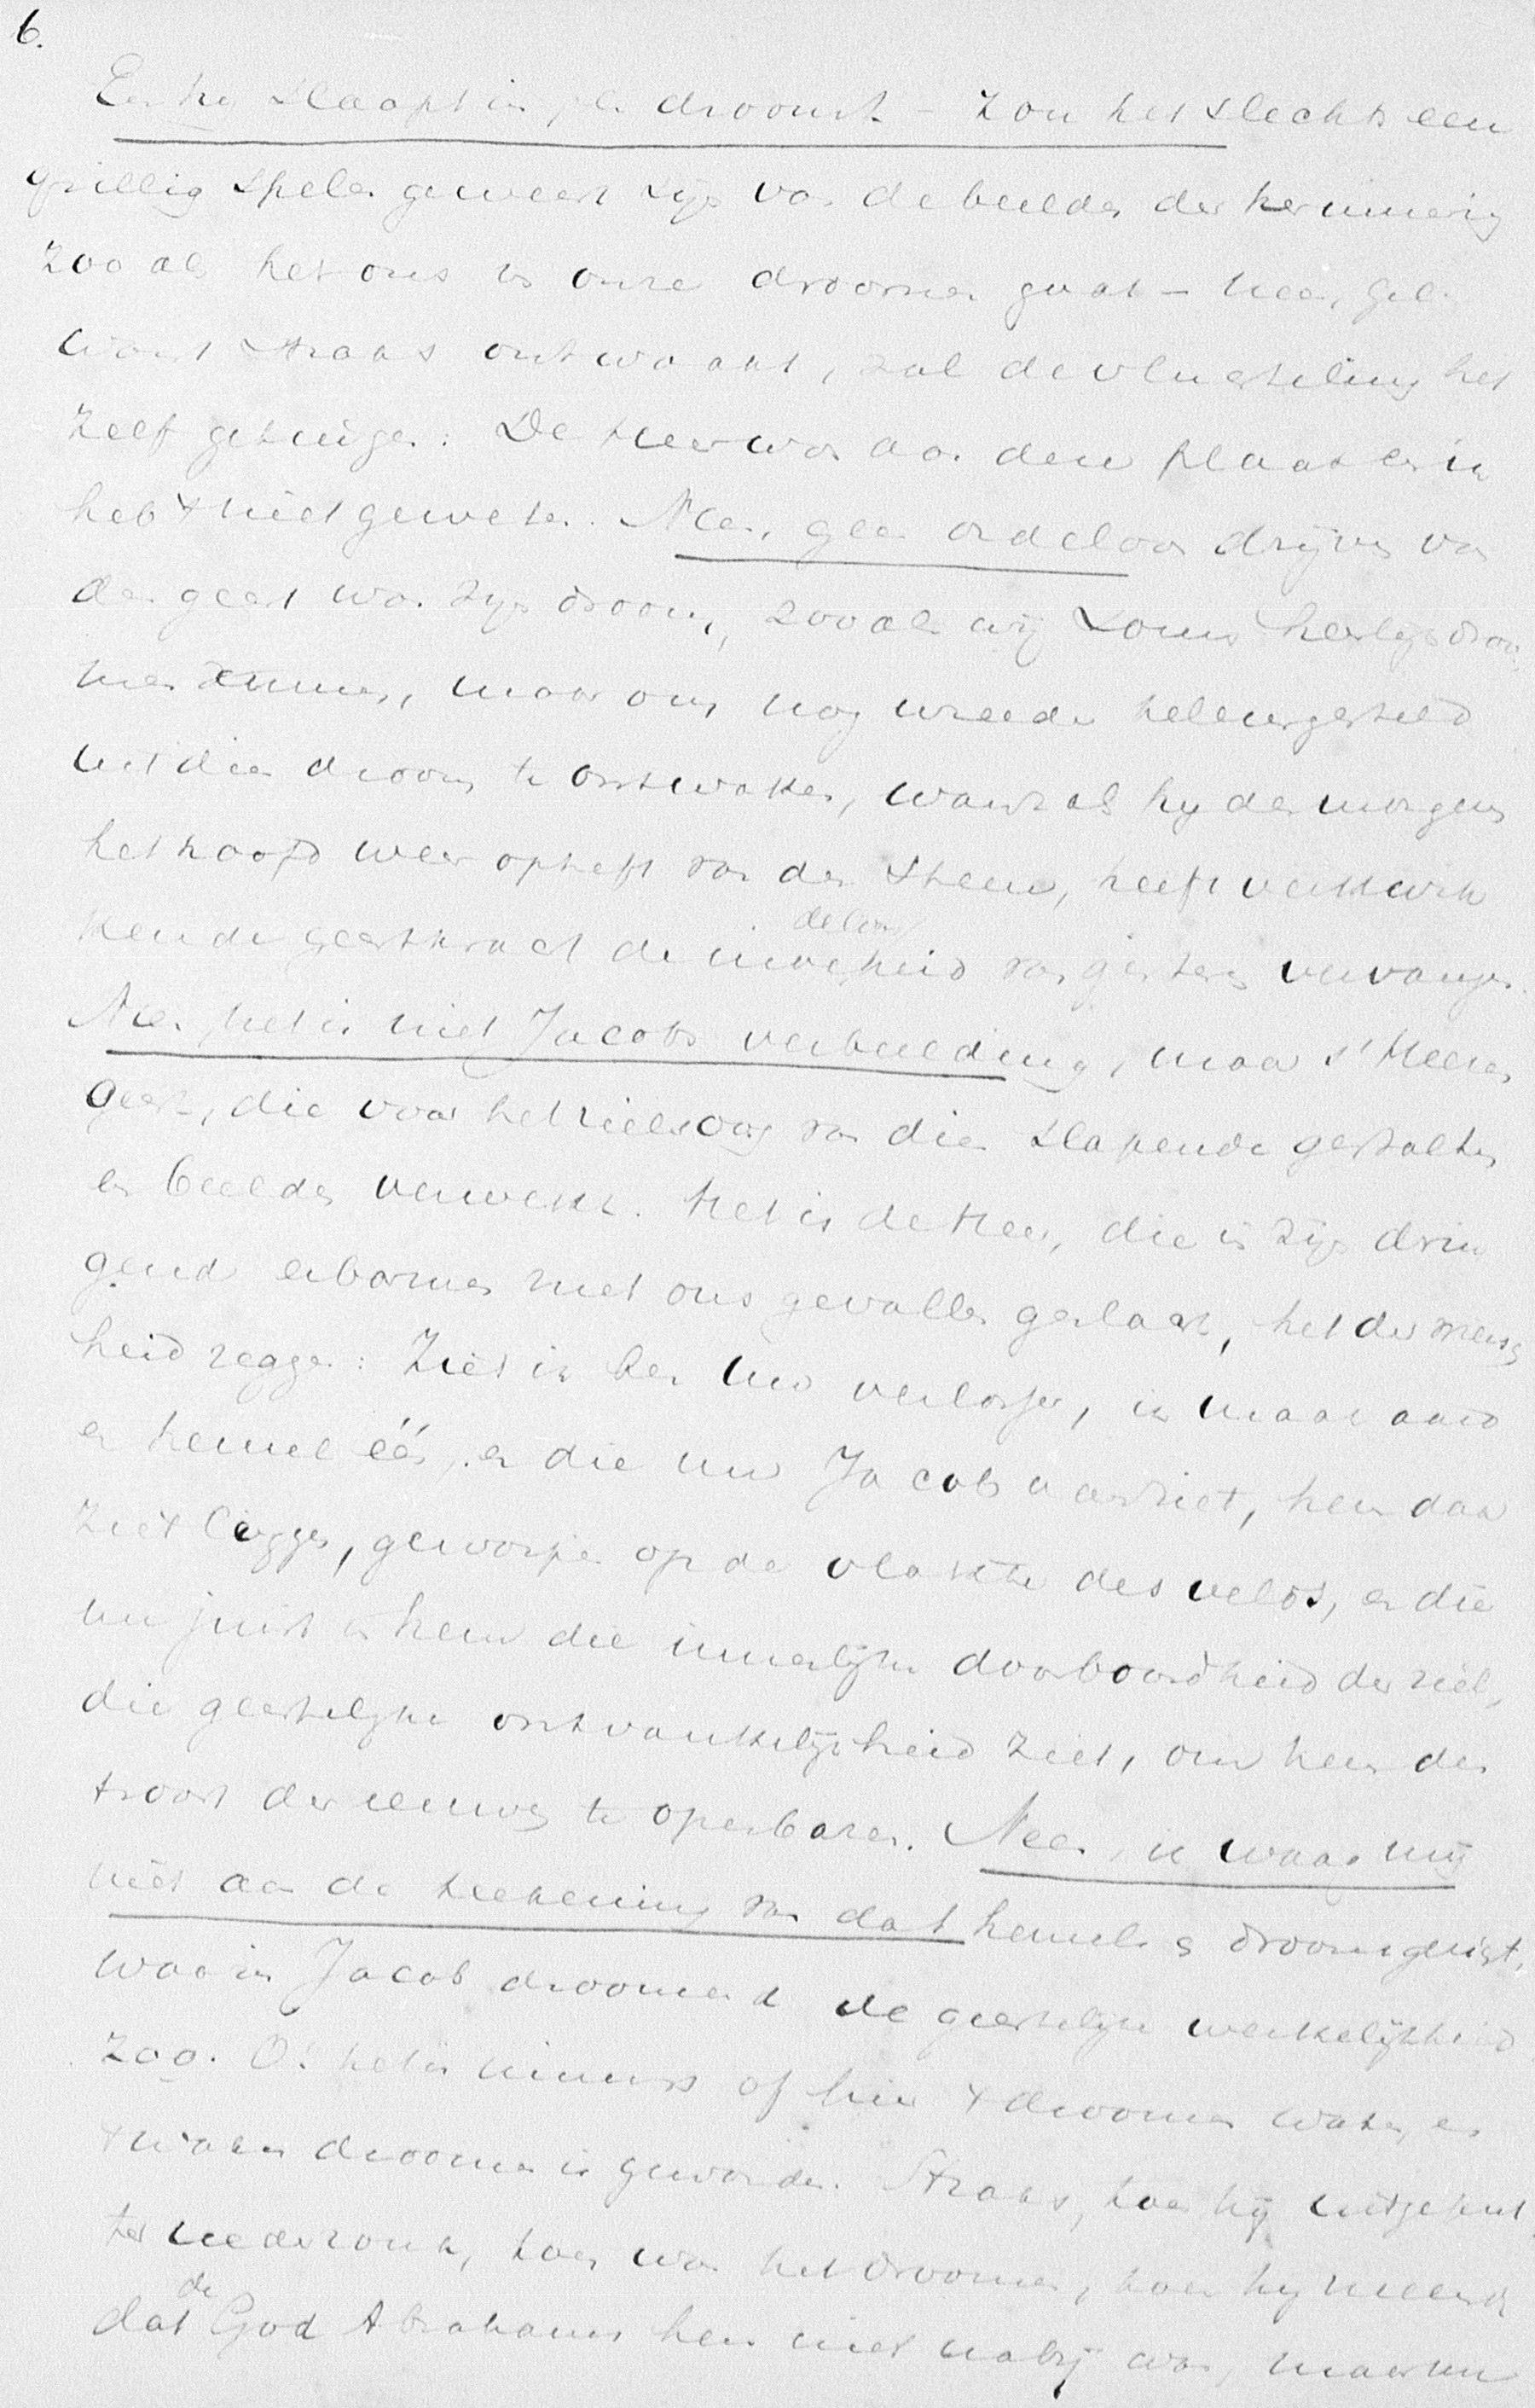 6.
En hij slaapt in, en droomt - zou het slechts een
grillig spelen geweest zijn van de beelden der herinnering
zooals het ons in onze droomen gaat - neen, Gel.
want straks ontwaakt, zal de vluchteling het
zelf getuigen: De Heer was aan deze plaats en ik
heb 't niet geweten. Neen, geen ordeloos drijven van
den geest was zijn droom, zooals wij soms heerlijk droo
men kunnen, maar om nog wreeder teleurgesteld
uit dien droom te ontwaken, want als hij des morgens
het hoofd weer opheft van den steen, heeft verkwik
kende geestkracht de moedeloosheid van gisteren vervangen.
Neen, het is niet Jacobs verbeelding, maar s' Heeren
geest, die voor het zielsoog van dien slapende gestalten
en beelden verwekt. Het is de Heer, die in zijn drin
gend erbarmen met ons gevallen geslacht, het der mensch
heid zegge: Ziet ik ben uw verlosser, ik maak aard
en hemel één, en die nu Jacob aanziet, hem daar
ziet liggen, geworpen op de vlakte des velds, en die
nu juist in hem die innerlijke doorboordheid der ziel,
die geestelijke ontvankelijkheid ziet, om hem den
troost der eeuwen te openbaren. Neen, ik waag mij
niet aan de teekening van dat hemelsch droomgezigt,
waarin Jacob droomend de geestelijke werkelijkheid
zag. O! het is immers of hier 't droomen waken, en
't waken droomen is geworden. Straks, toen hij uitgeput
ter nederzonk, toen was het droomen, toen hij meende
dat de God Abrahams hem niet nabij was, maar nu